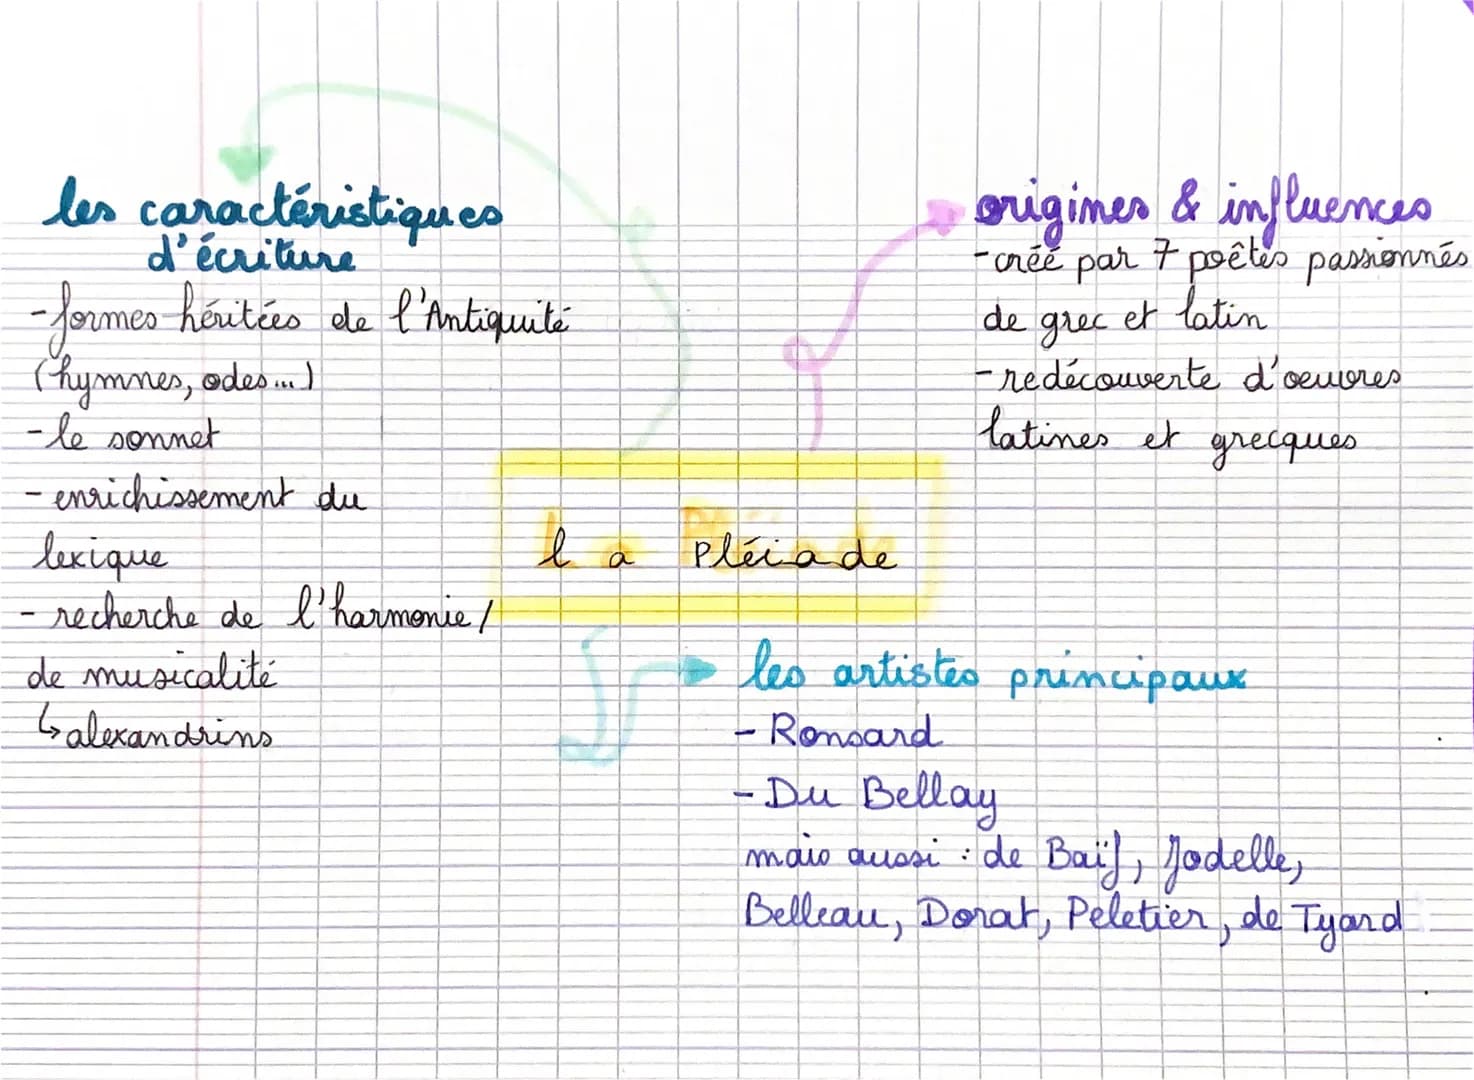 les caractéristiques
d'écriture
- formes héritées de l'Antiquité
(hymnes, odes...)
- le sonnet
- enrichissement du
lexique
- recherche de l'harmonie/
de musicalité
↳ alexandrins
origines & influences
- créé par 7 poêtes passionnés
de grec et latin
- redécouverte d'oeuvres
latines et grecques
la Pléiade
les artistes principaux
- Ronsard
- Du Bellay
mais aussi : de Baïf, Jodelle,
Belleau, Dorat, Peletier, de Tyard